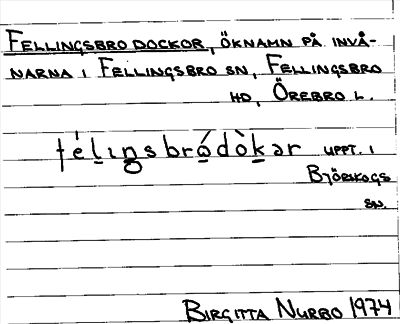 FELLINGSBRO DOCKOR, ÖKNAMN PÅ INVÅ-
NARNA I FELLINGSBRO SN, FELLINGSBRO
HD, ÖREBRO L.
félıŋsbródòkər UPPT. I
BJÖRSKOGS
SN.
BIRGITTA NURBO 1974